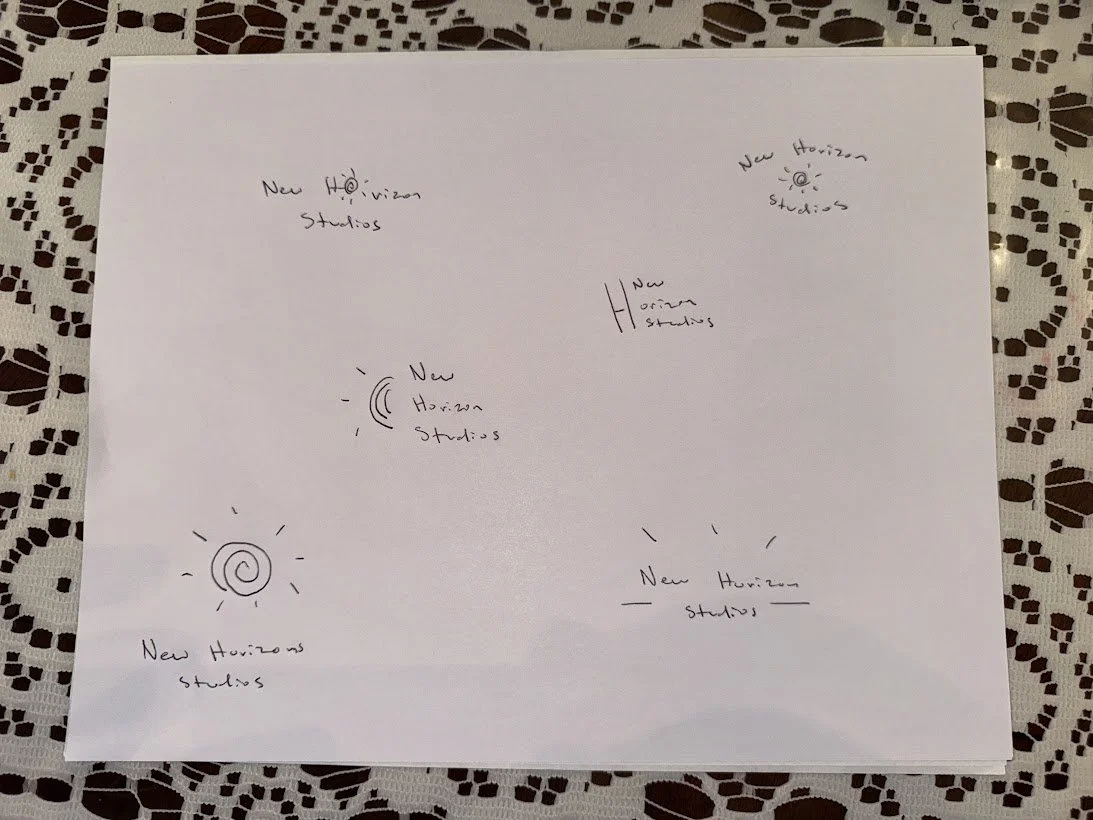 New Horizon
Studios
New Horizon
Studios
New
Horizon
Studios
New
Horizon
Studios
New Horizons
Studios
New Horizon
Studios